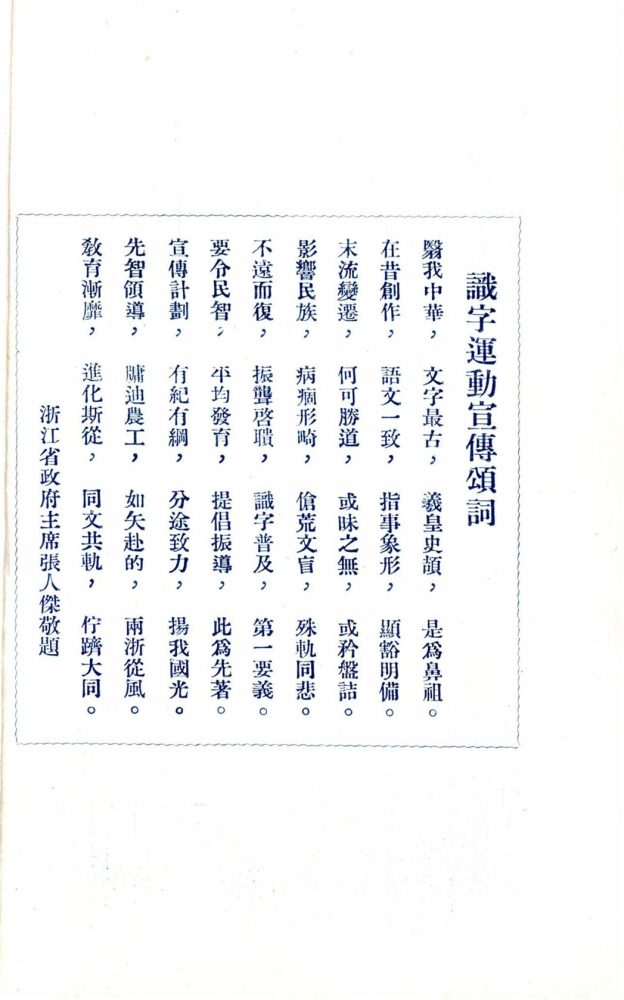 識字運動宣傳頌詞
繄我中華，文字最古，羲皇史頡，是爲鼻祖。
在昔創作，語文一致，指事象形，顯豁明備。
末流變遷，何可勝道，或昧之無，或矜盤詰。
影響民族，病痼形畸，傖荒文盲，殊軌同悲。
不遠而復，振聾啓聵，識字普及，第一要義。
要令民智，平均發育，提倡振導，此爲先著。
宣傳計劃，有紀有綱，分途致力，揚我國光。
先智領導，牖迪農工，如矢赴的，兩浙從風。
敎育漸靡，進化斯從，同文共軌，佇躋大同。
浙江省政府主席張人傑敬題